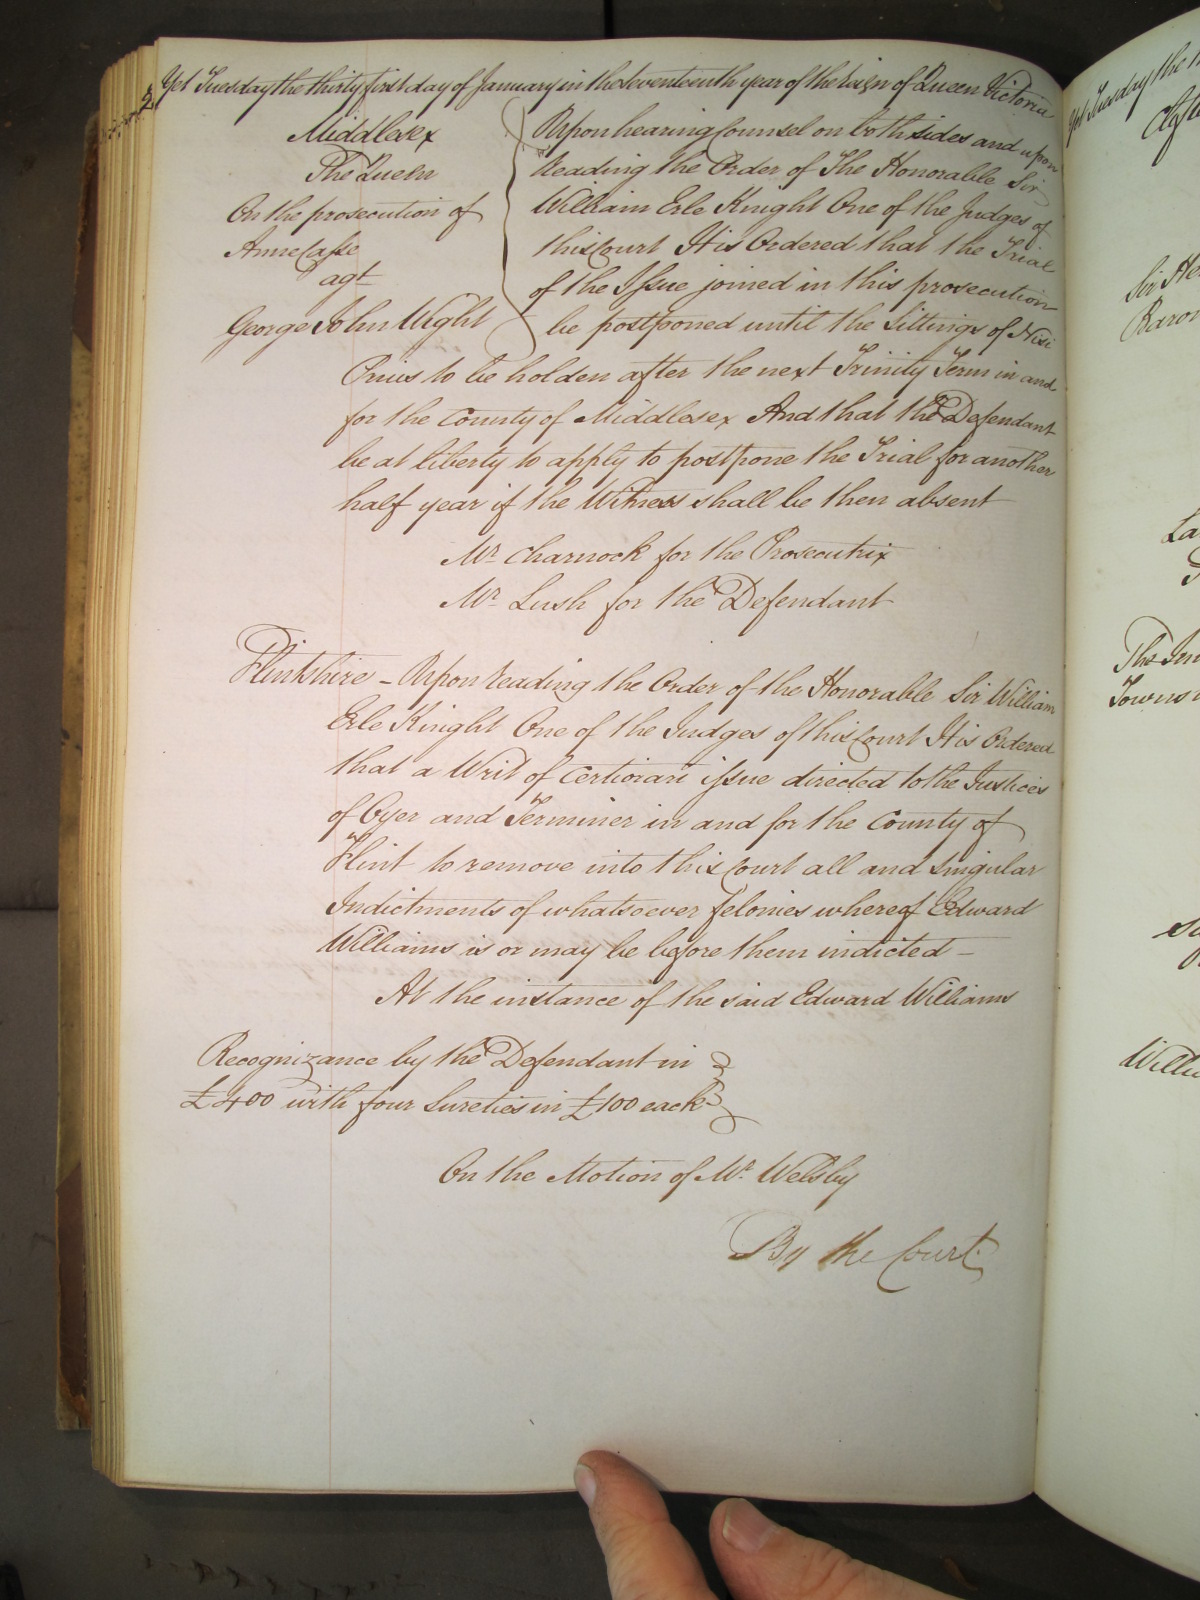 Yet Tuesday the thirty first day of January in the seventeenth year of the Reign of Queen Victoria
Middlesex
The Queen
On the prosecution of
Anne Casse
agt
George John Wight
Upon hearing Counsel on both sides and upon
Reading the Order of The Honorable Sir
William Erle Knight One of the Judges of
this Court It is Ordered that the Trial
of the Issue joined in this prosecution
be postponed until the Sittings of Nisi
Prius to be holden after the next Trinity Term in and
for the County of Middlesex And that the Defendant
be at liberty to apply to postpone the Trial for another
half year if the Witness shall be then absent
Mr Charnock for the Prosecutrix
Mr Lush for the Defendant
Flintshire – Upon reading the Order of the Honorable Sir William
Erle Knight One of the Judges of this Court It is Ordered
that a Writ of Certiorari issue directed to the Justices
of Oyer and Terminer in and for the County of
Flint to remove into this Court all and singular
Indictments of whatsoever felonies whereof Edward
Williams is or may be before them indicted –
At the instance of the said Edward Williams
Recognizance by the Defendant in
£400 with four Sureties in £100 each
On the Motion of Mr. Welsby
By the Court
Yet Tuesday the
Sir
Baron
La
The
Towns
Willi